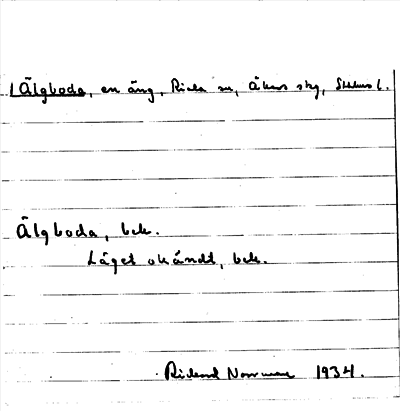 / Älgboda, en äng, Riala sn, Åkers skg, Sthlms l.
Älgboda, bek.
Läget okändt, bek.
Rickard Norrman 1934.